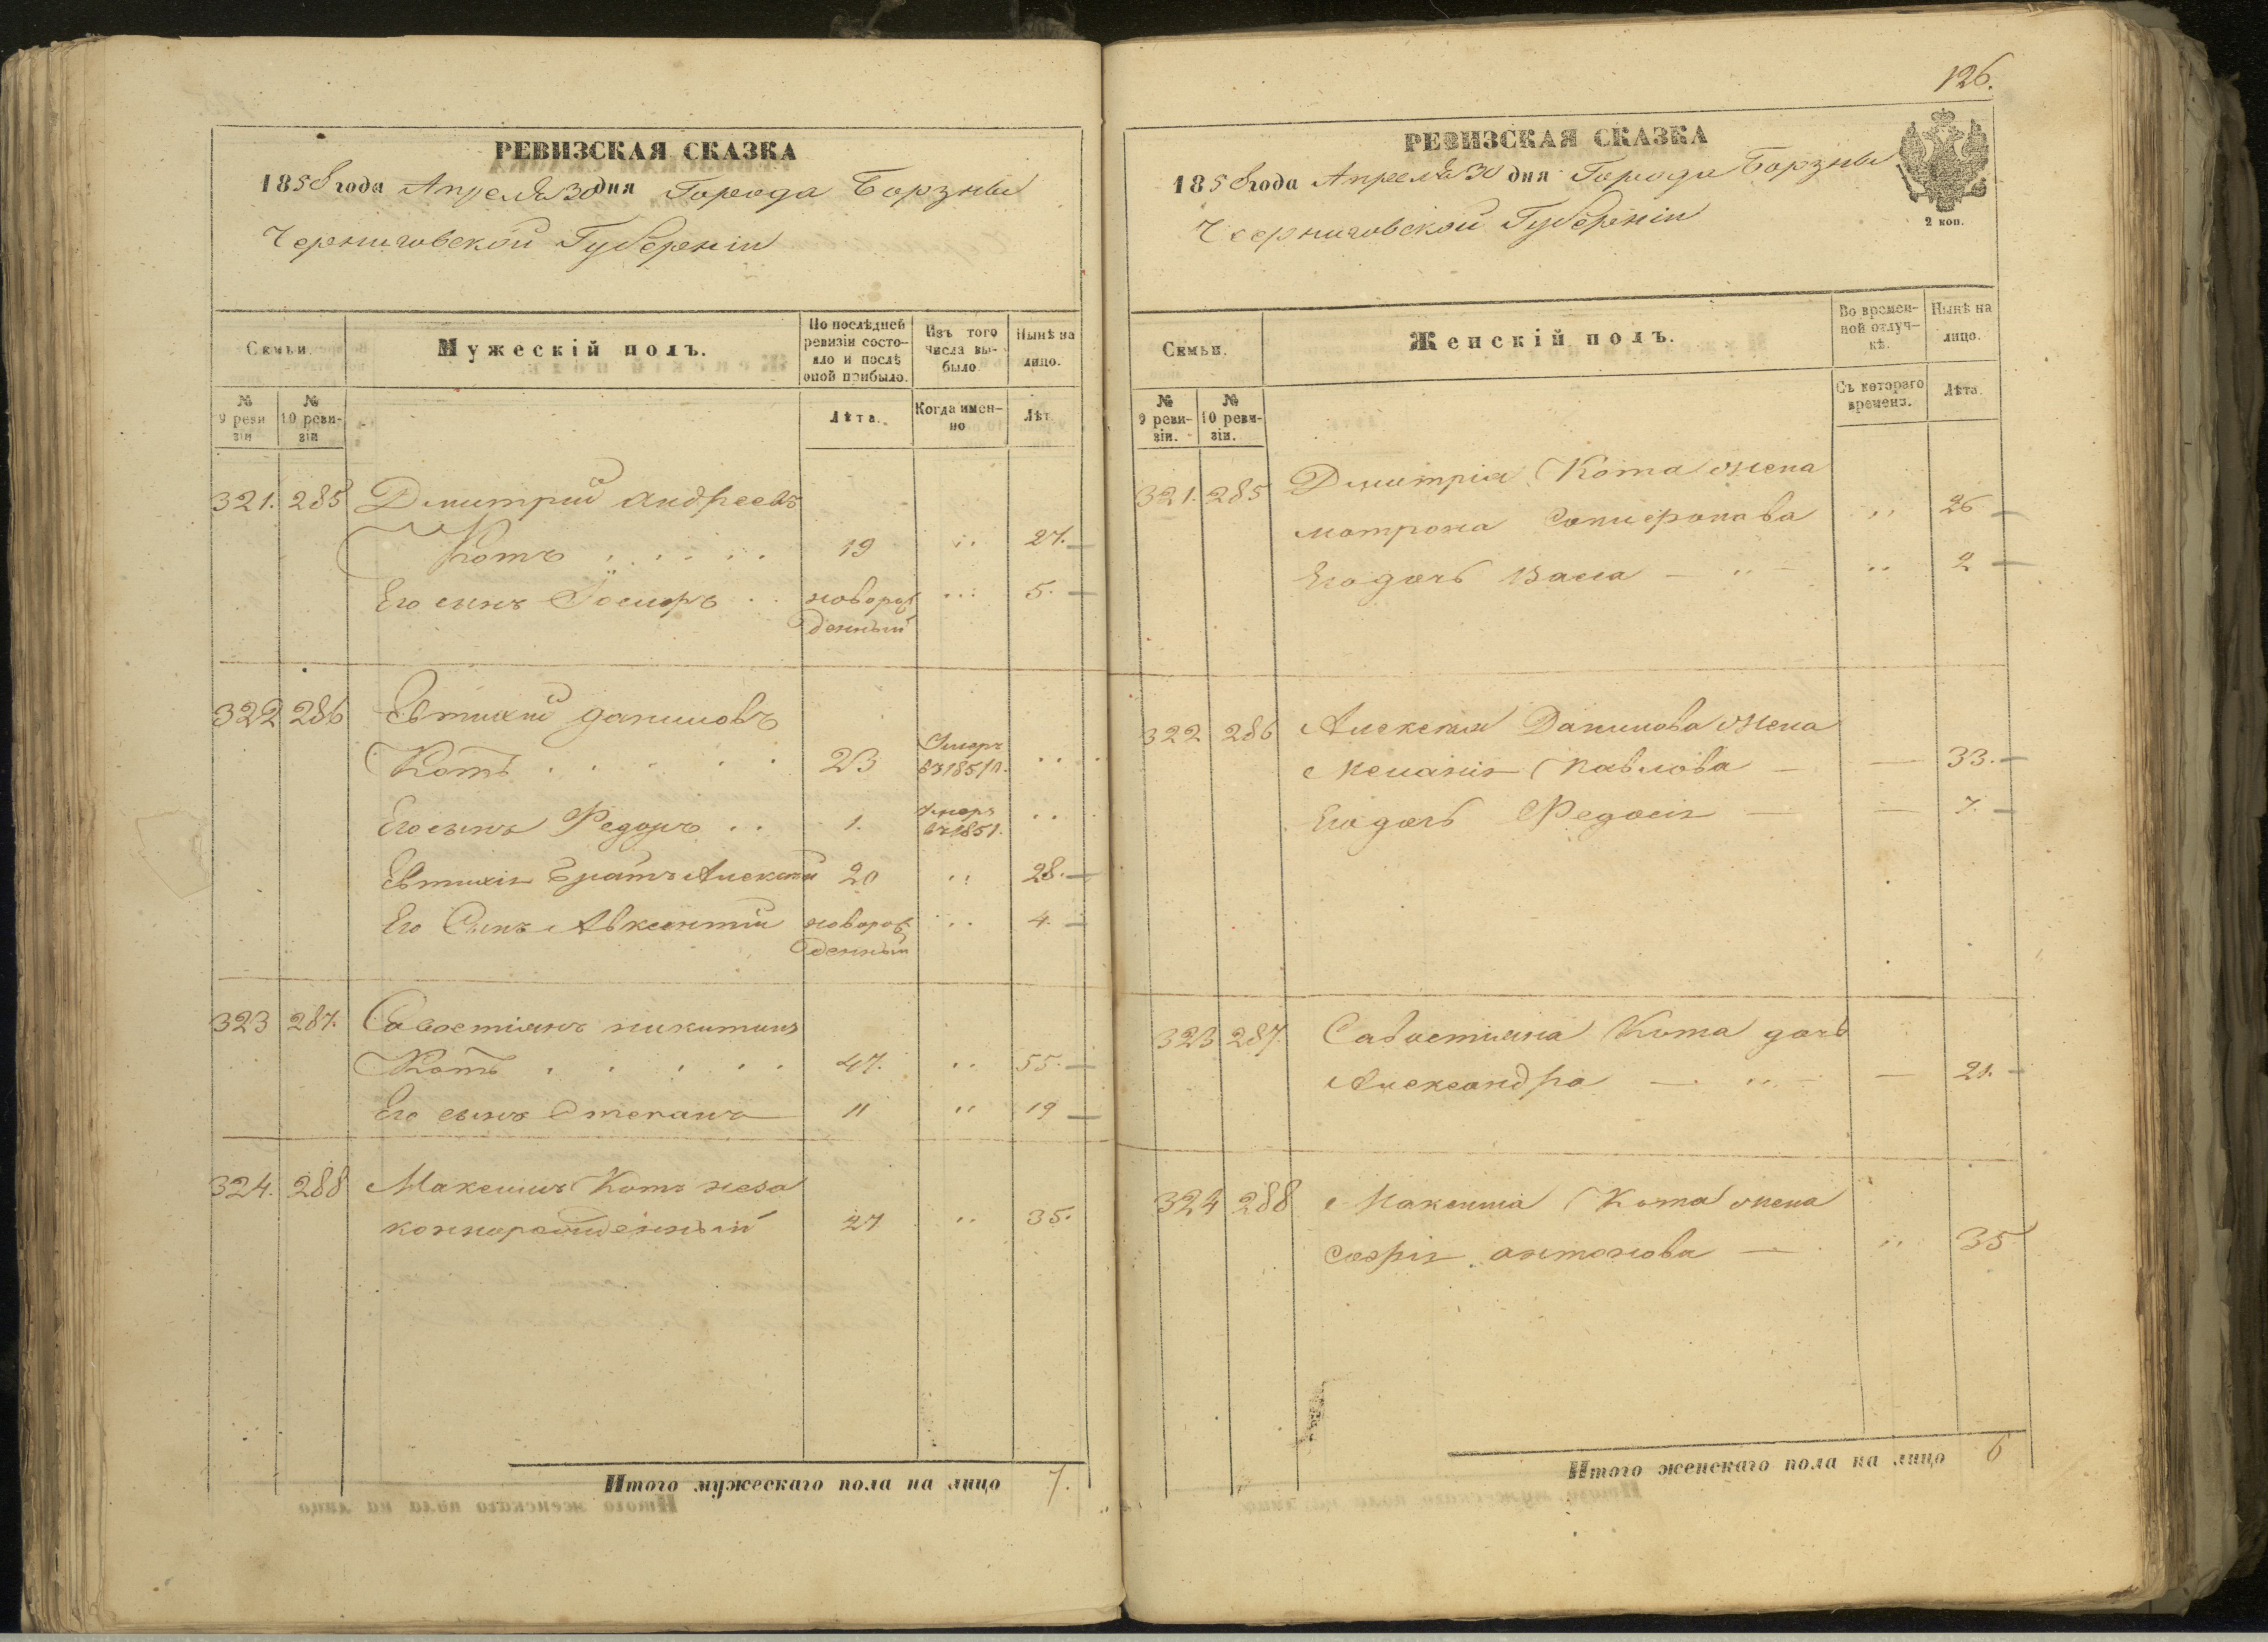 РЕВИЗСКАЯ СКАЗКА
1858 года Апреля 30 дня Города Борзны
Черниговской Губерніи
Семьи.
Мужескій полъ.
По послѣдней ревизіи состояло и послѣ оной прибыло.
Изъ того числа выбыло.
Нынѣ на лицо.
№ 9 ревизіи
№ 10 ревизіи
Лѣта.
Когда именно
Лѣт
321. 285 Дмитрий Андреевъ
Котъ . . . . . 19 " 27. —
Его сынъ . . новорож 5. —
денный
322 286 Евтихий Даниловъ
Котъ . . . . . 23 Умеръ въ 185 . .
Его сынъ Федоръ . . 1. Умеръ въ 1851. . .
Евтихія братъ Алексѣй 20 " 28. —
Его Сынъ Авксентий новорож " 4. —
денный
323 287. Савостіянъ Никитинъ
Котъ . . . . . 47. " 55. —
Его сынъ Степанъ 11 " 19 —
324. 288 Максимъ Котъ неза
коннорожденный 27 " 35.
Итого мужескаго пола на лицо 7.
126.
РЕВИЗСКАЯ СКАЗКА
2 коп.
1858 года Апреля 30 дня Города Борзны
Черниговской Губерніи
Семьи.
Женскій полъ.
Во временной отлучкѣ.
Нынѣ на лицо.
№ 9 ревизіи.
№ 10 ревизіи.
Съ котораго времени.
Лѣта.
321. 285 Дмитрія Кота жена
Матрона " 26 —
Его дочь Васса — " — " 2 —
322 286 Алексея Данилова жена
Меланія Павлова — — 33. —
Его дочь Федосія — — 7. —
323 287. Савостияна Кота дочь
Александра — " — — 21. —
324 288 Максима Кота жена
Софія Антонова — " 35
Итого женскаго пола на лицо 6